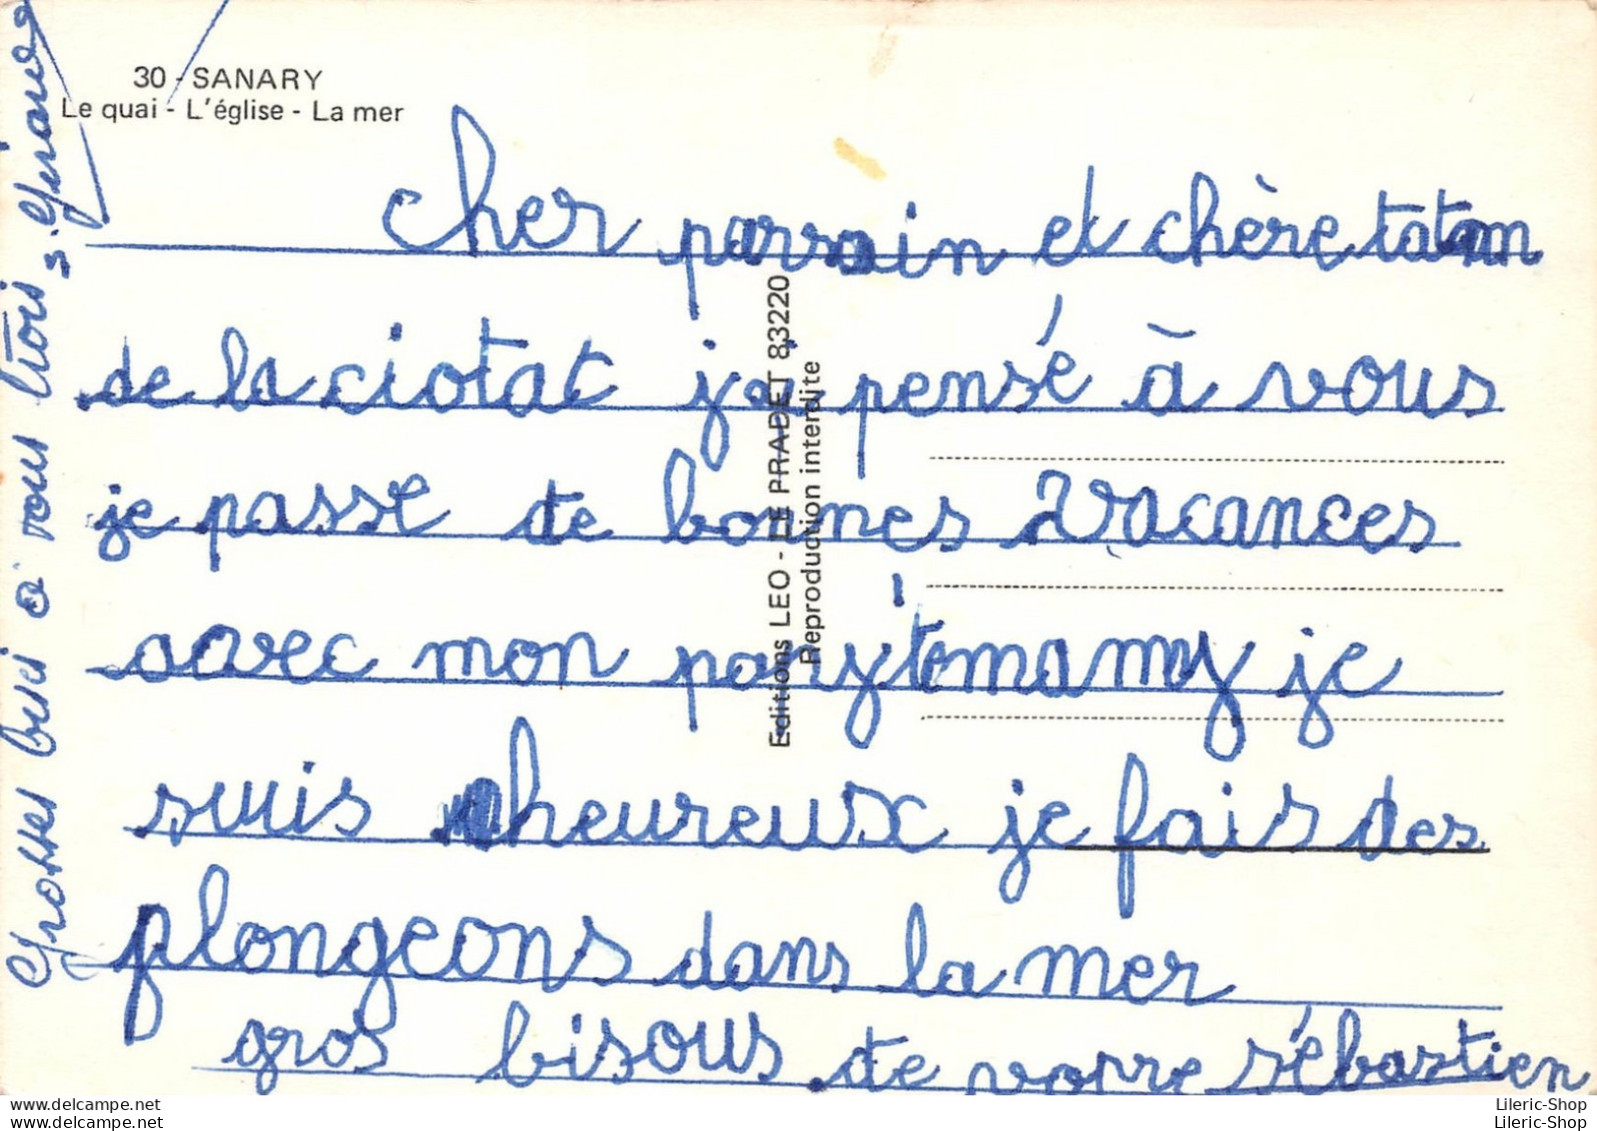 30 - SANARY
Le quai - L'église - La mer
cher parrain et chère tatam
de la ciotat je pensé à vous
je passe de bonnes vacances
avec mon papy et mamy je
suis heureux je fais des
plongeons dans la mer
gros bisous de vorre sébastien
Grosses bises à vous trois
Editions LEO - LE PRADET 83220
Reproduction interdite
www.delcampe.net
www.delcampe.net
Lileric-Shop
Lileric-Shop